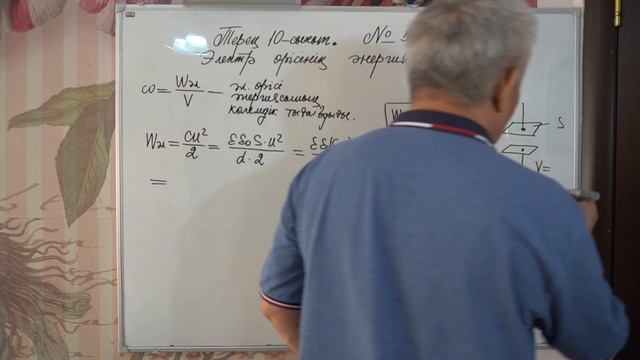 Терең 10-сынып. №
Электр өрісінің энергия
ω = Wэл/V — эл. өрісі
энергиясының
көлемдік тығыздығы.
W
Wэл = CU²/2 = εε₀S·U²/d·2 =
S
V=
=